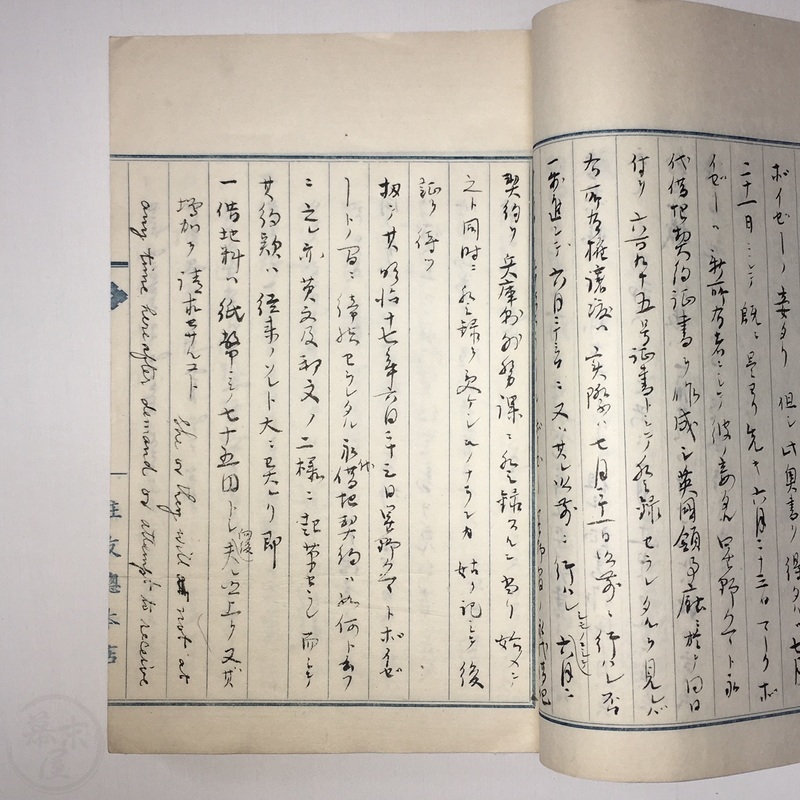 ボイゼーノ妻タリ 但シ此奥書ヲ得タルハ七月
二十一日ニシテ既ニ是ヨリ先キ六月二十三日マークボ
イゼーハ新所有者ニシテ彼ノ妻タル星野クマト永
代借地契約証書ヲ作成シ英国領事庁ニ於テ同日
付ヲ六百九十五号証書トシテ登録セラレタルヲ見レバ
右所有権譲渡ハ実際ハ七月二十一日以前ニ行ハレ
一歩進ンデ六月二十三日ニ又ハ其レ以前ニ行ハレ 六月
契約ヲ兵庫県外務課ニ登録スルニ当リ始メテ
之ト同時ニ登録ヲ受ケシモノナランカ 姑ク記シテ後
証ヲ待ツ
扨テ其明治十七年六月二十三日星野クマトボイゼ
ートノ間ニ締結セラレタル永代借地契約ハ如何ト云フ
ニ之レ亦英文及和文ノ二様ニ起草セラレ而シテ
其約款ハ従来ノソレト大ニ異レリ即
一借地料ハ紙幣ニテ七十五円トシ夫レ以上ヲ又其
増加ヲ請求セサルコト she or they will not at
any time hereafter demand or attempt to receive
住友總本店